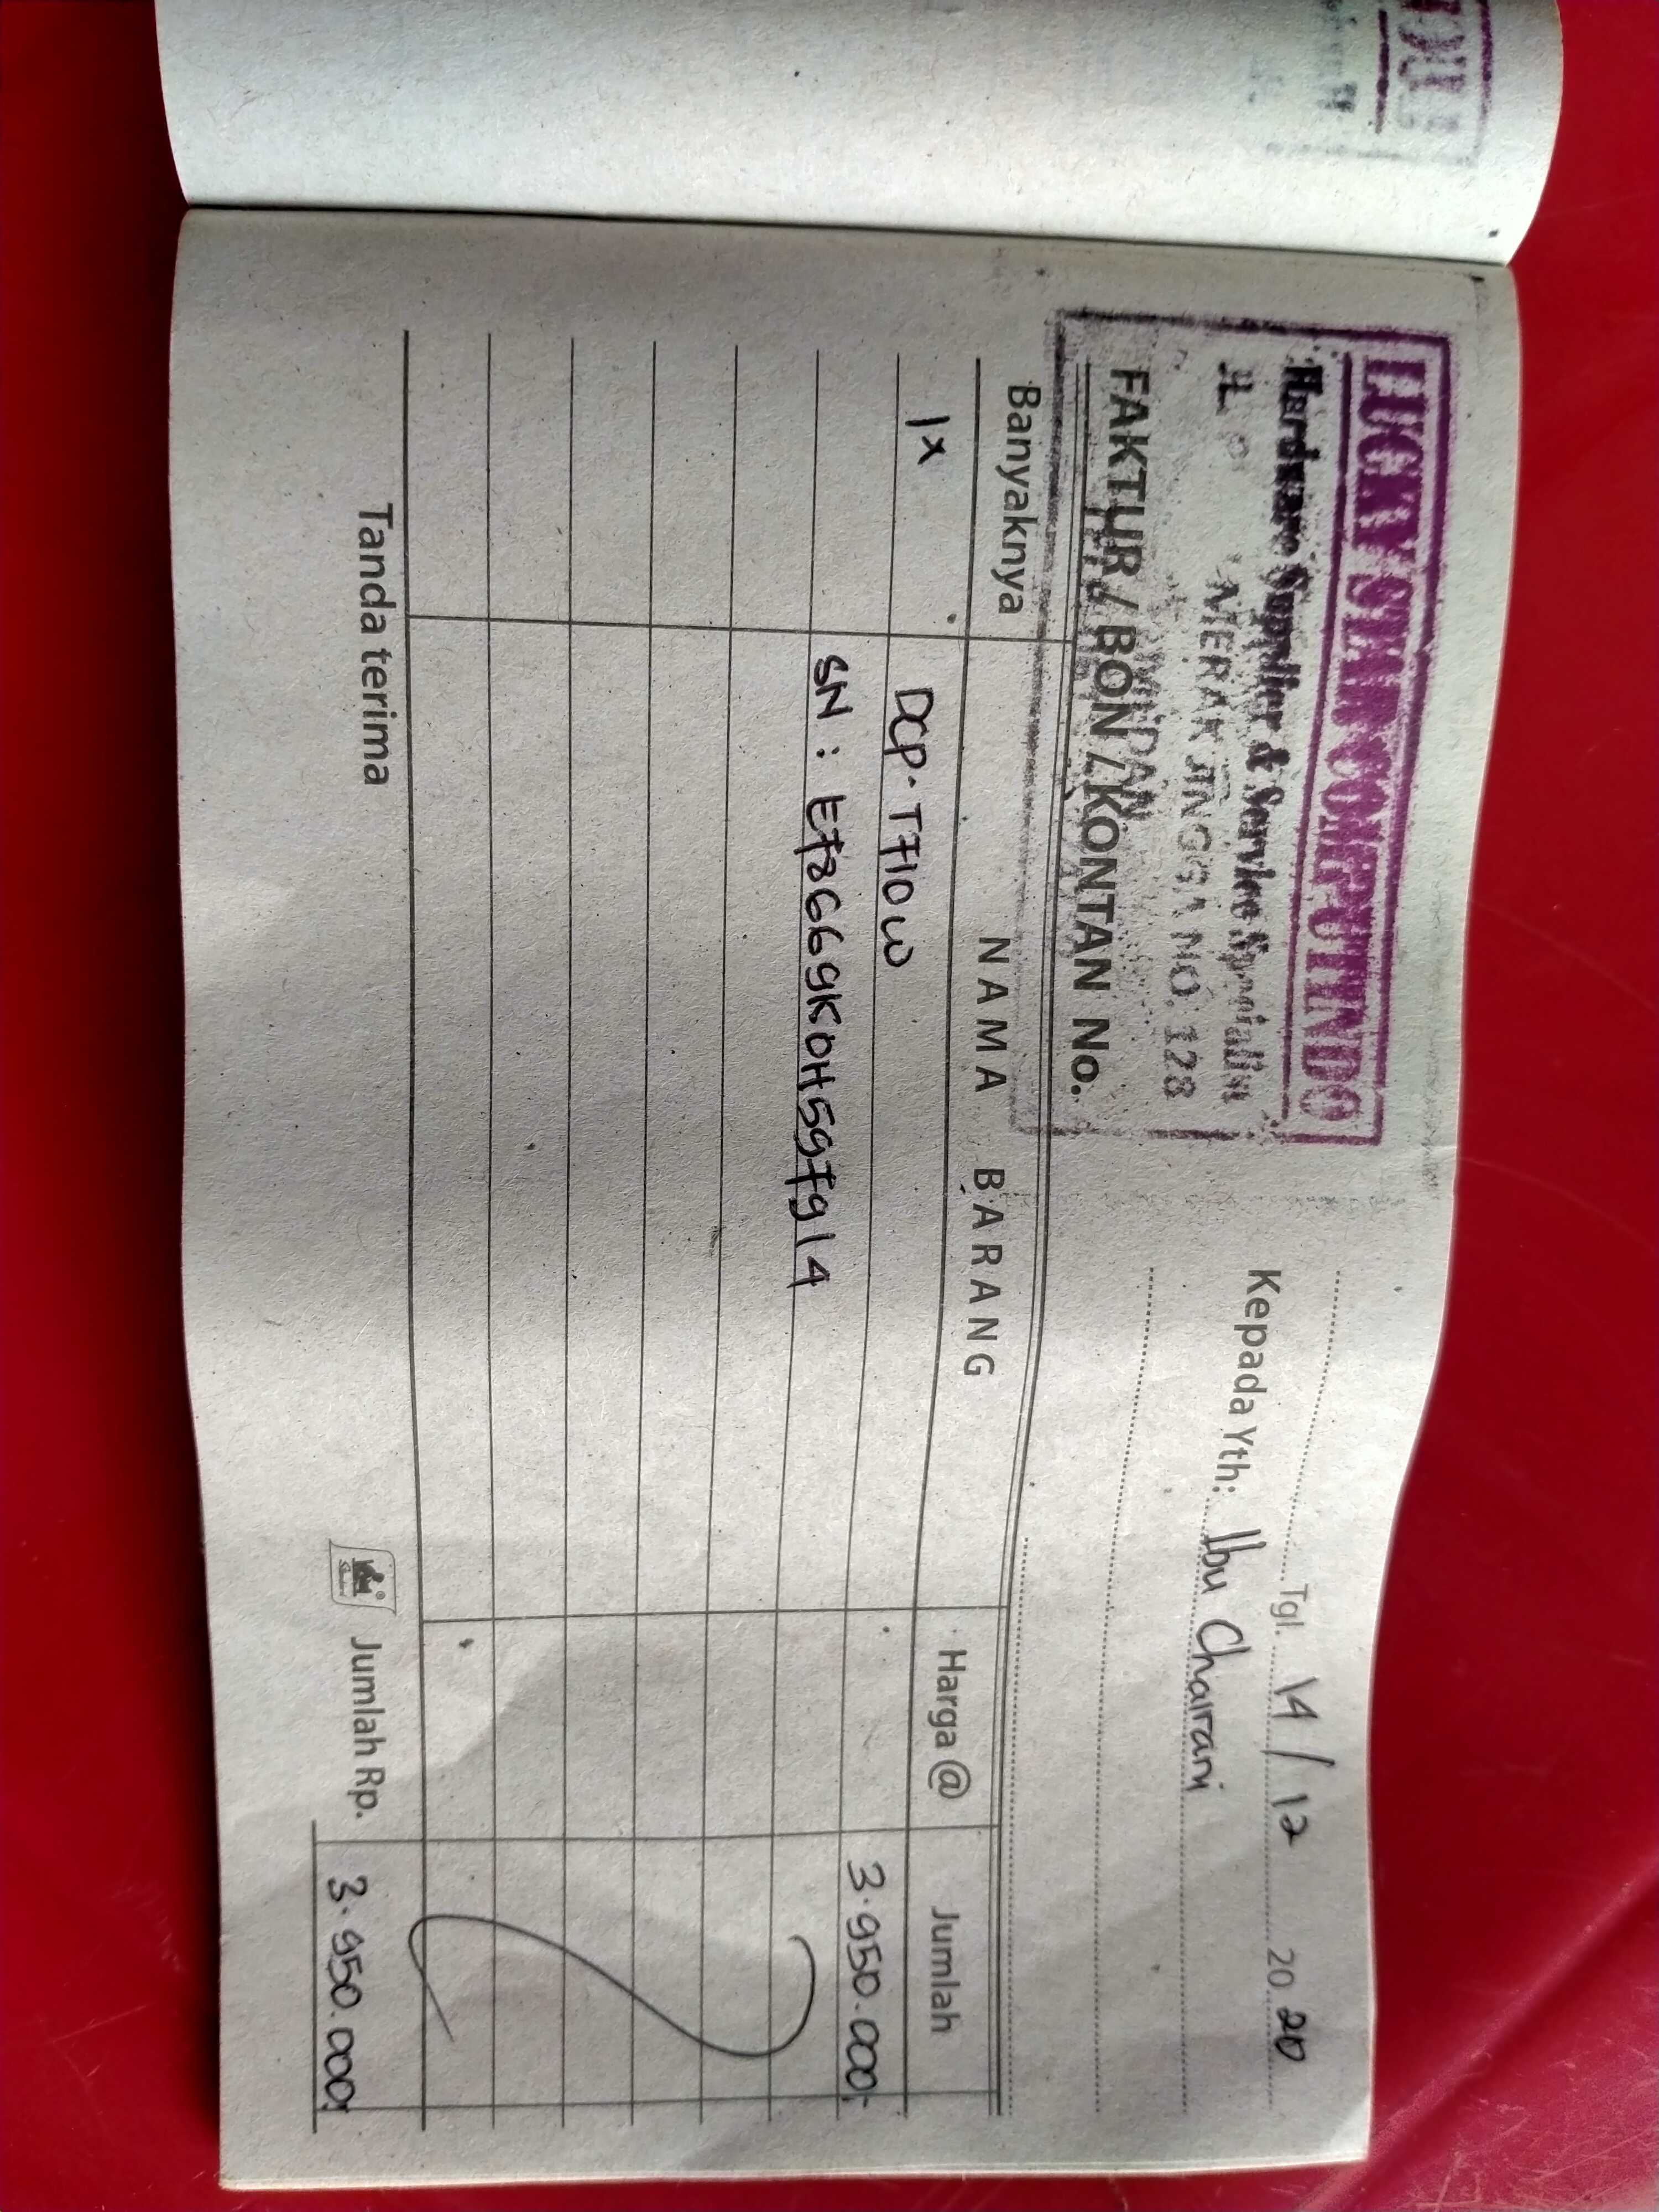 LUCKY STAR COMPUTINDO
Hardware Supplier & Service Spesialist
JL MERAK JINGGA NO. 128
MEDAN
Tgl. 14/12 2020
Kepada Yth: Ibu Chairani
FAKTUR / BON / KONTAN No.
Banyaknya NAMA BARANG Harga @ Jumlah
1x DCP-T710W 3.950.000,-
SN: E78669K0H597914
Tanda terima Jumlah Rp. 3.950.000,-